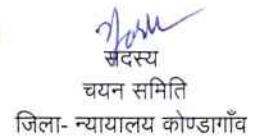 सदस्य
चयन समिति
जिला- न्यायालय कोण्डागाँव